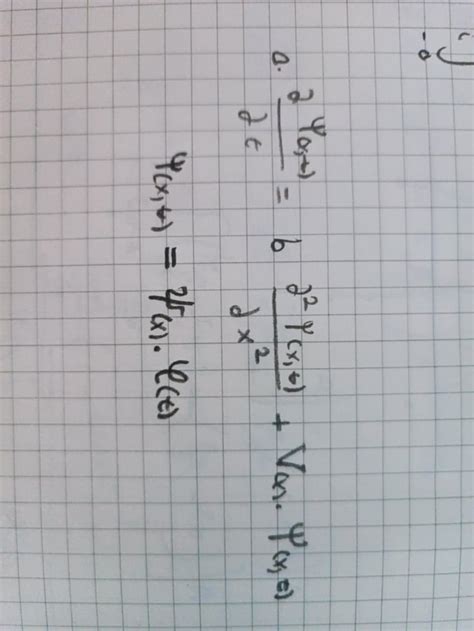 a. ∂ψ(x,t)/∂t = b ∂²ψ(x,t)/∂x² + V(x)·ψ(x,t)
ψ(x,t) = ψ(x)·φ(t)